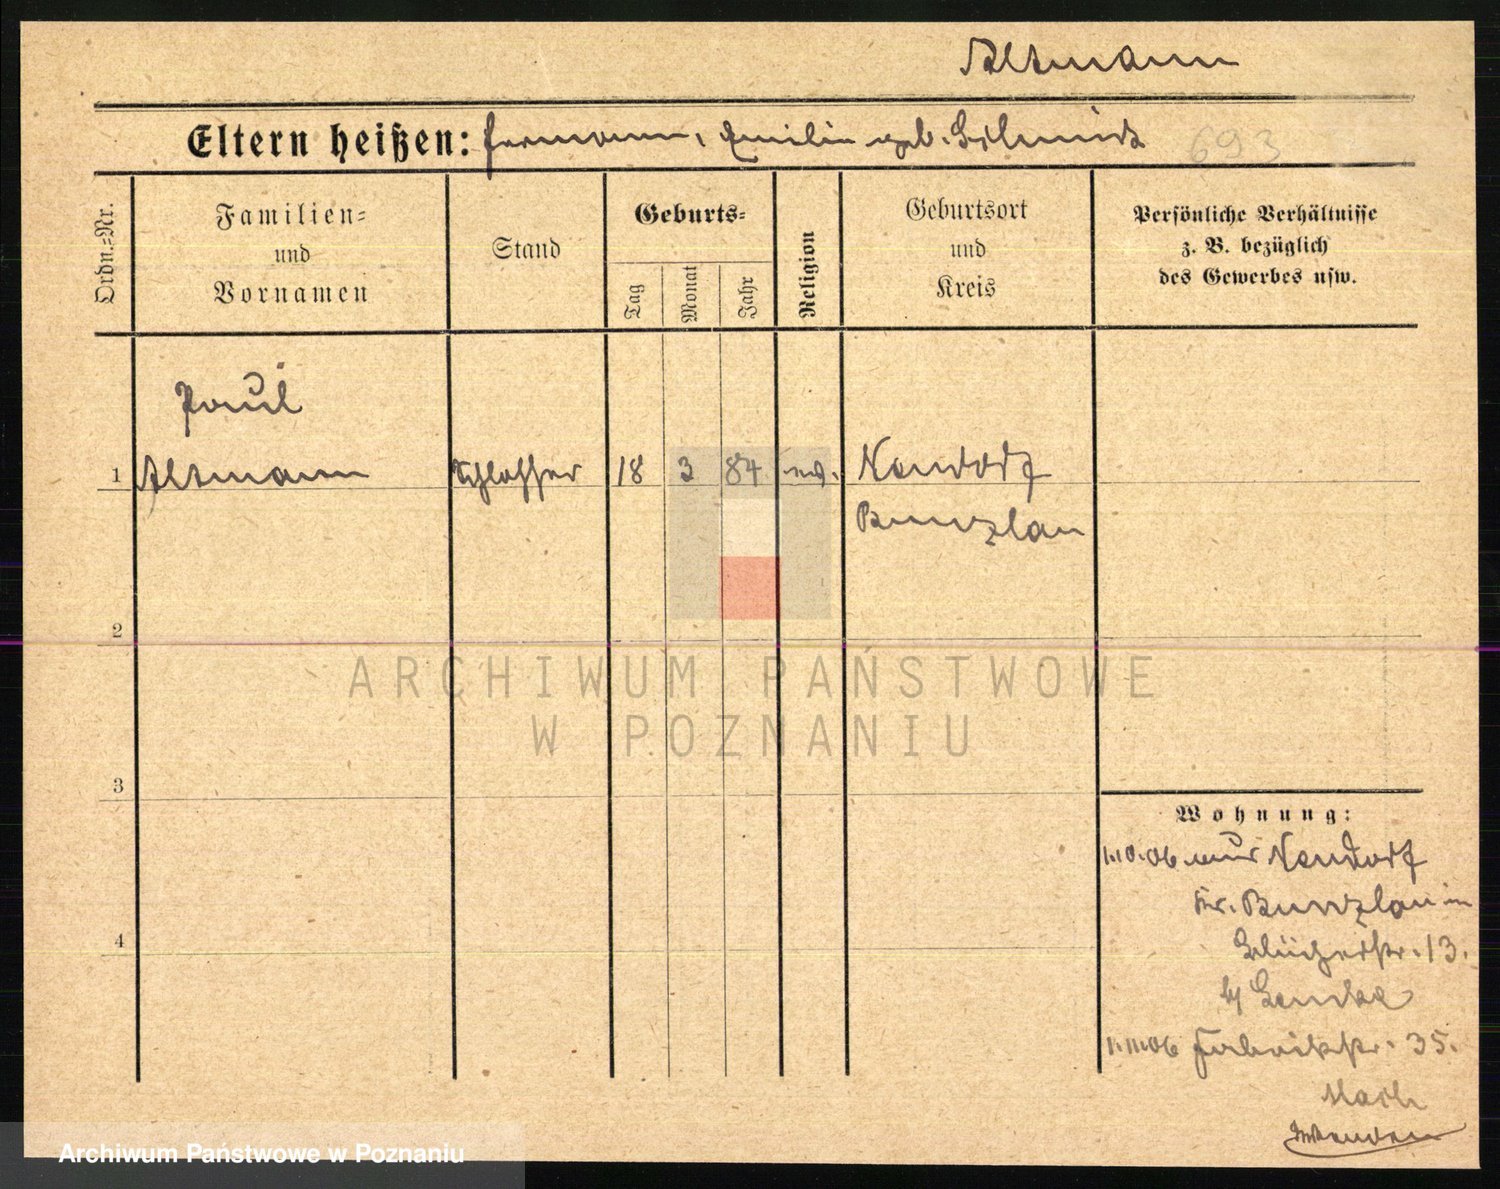 Altmann
Eltern heißen: Hermann, Emilie geb. Schmidt
693
Ordn.=Nr.
Familien=
und
Vornamen
Stand
Geburts=
Tag
Monat
Jahr
Religion
Geburtsort
und
Kreis
Persönliche Verhältnisse
z. B. bezüglich
des Gewerbes usw.
Paul
1 Altmann Schlosser 18 3 84 ev. Neudorf
Bunzlau
2
ARCHIWUM PAŃSTWOWE
W POZNANIU
3
Wohnung:
1.10.06 aus Neudorf
Kr. Bunzlau in
Blücherstr. 13.
b/
4
1.11.06 Fabrikstr. 35.
Wenden
Archiwum Państwowe w Poznaniu